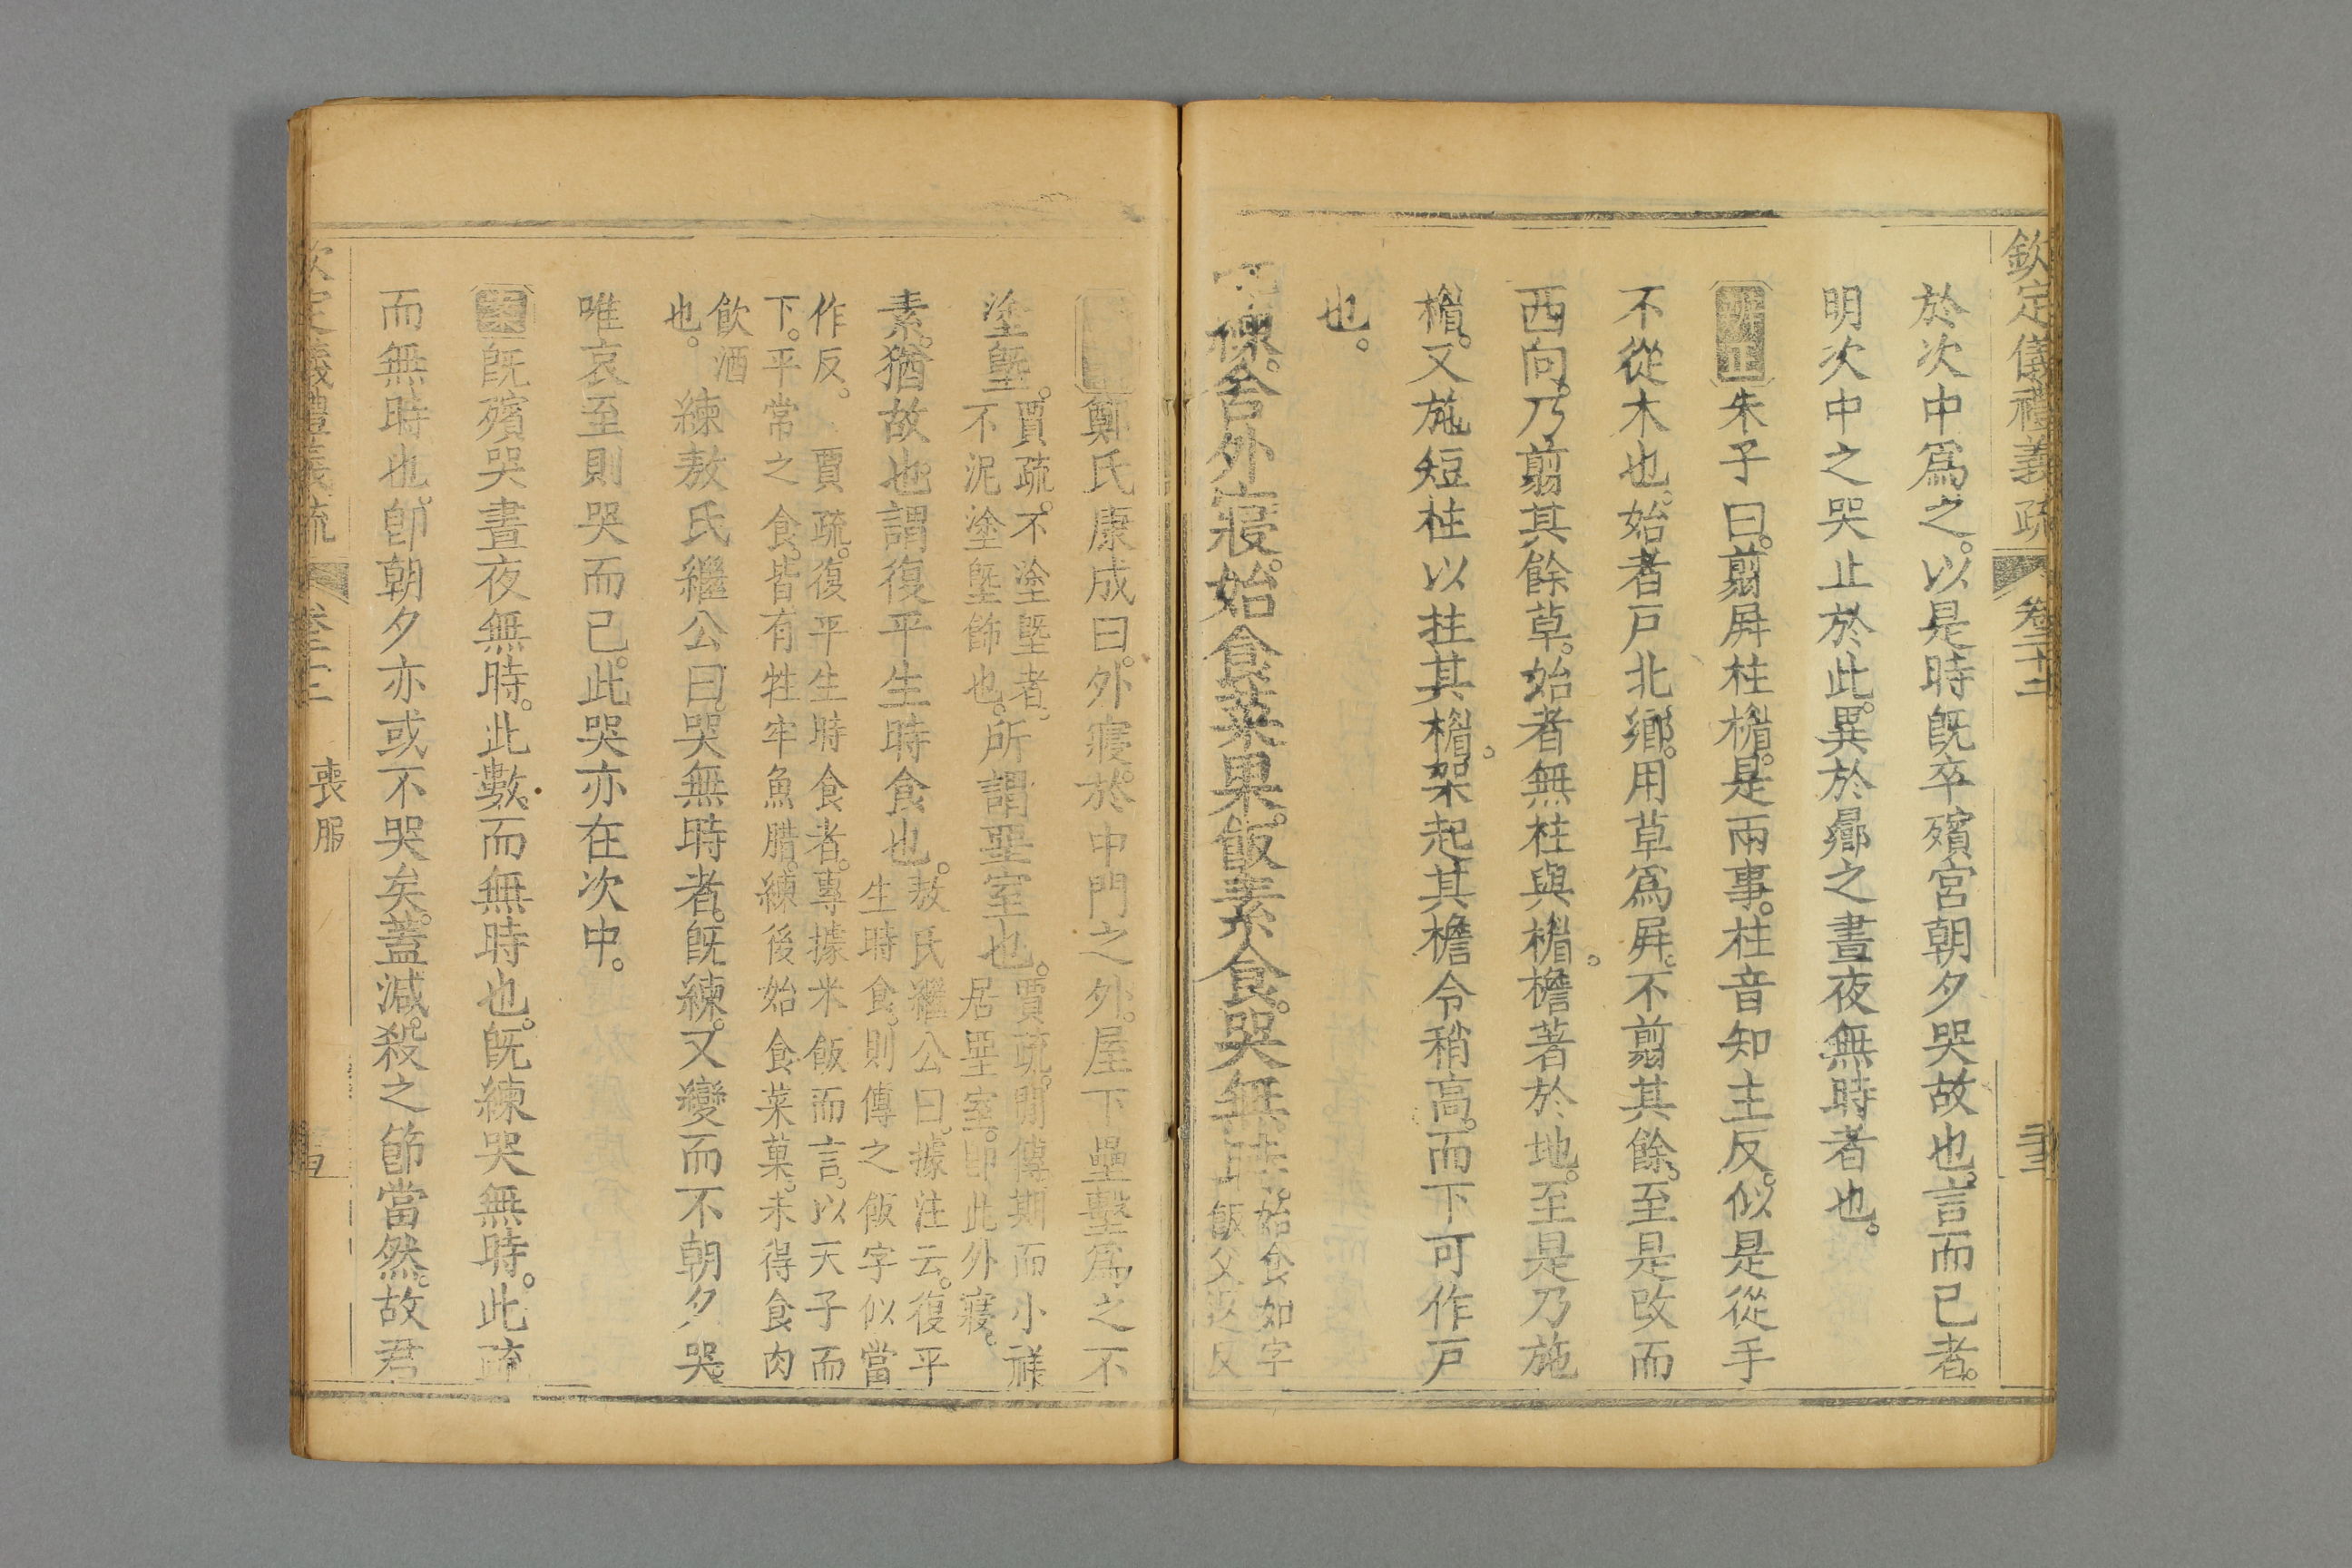 欽定儀禮義疏 卷二十二
於次中爲之。以是時旣卒殯宮朝夕哭故也。言而已者。
明次中之哭止於此。異於曏之晝夜無時者也。
朱子曰。翦屛柱楣。是兩事。柱音知主反。似是從手
不從木也。始者戶北鄉。用草爲屛。不翦其餘。至是改而
西向。乃翦其餘草。始者無柱與楣。檐著於地。至是乃施
楣。又施短柱以拄其楣。架起其檐令稍高。而下可作戶
也。
舍外寢。始食菜果。飯素食。哭無時。
始食如字
飯父返反
鄭氏康成曰。外寢。於中門之外。屋下壘墼爲之。不
塗塈。
賈疏。不塗塈者。
不泥塗塈飾也。
所謂堊室也。
賈疏。閒傳。期而小祥
居堊室。卽此外寢。
素。猶故也。謂復平生時食也。
敖氏繼公曰。據注云。復平
生時食。則傳之飯字似當
作反。 賈疏。復平生時食者。專據米飯而言。以天子而
下。平常之食。皆有牲牢魚腊。練後始食菜菓。未得食肉
飲酒
也。
練敖氏繼公曰。哭無時者。旣練。又變而不朝夕哭。
唯哀至則哭而已。此哭亦在次中。
旣殯哭晝夜無時。此數而無時也。旣練哭無時。此疏
而無時也。卽朝夕亦或不哭矣。蓋減殺之節當然。故君
定儀禮義疏 喪服